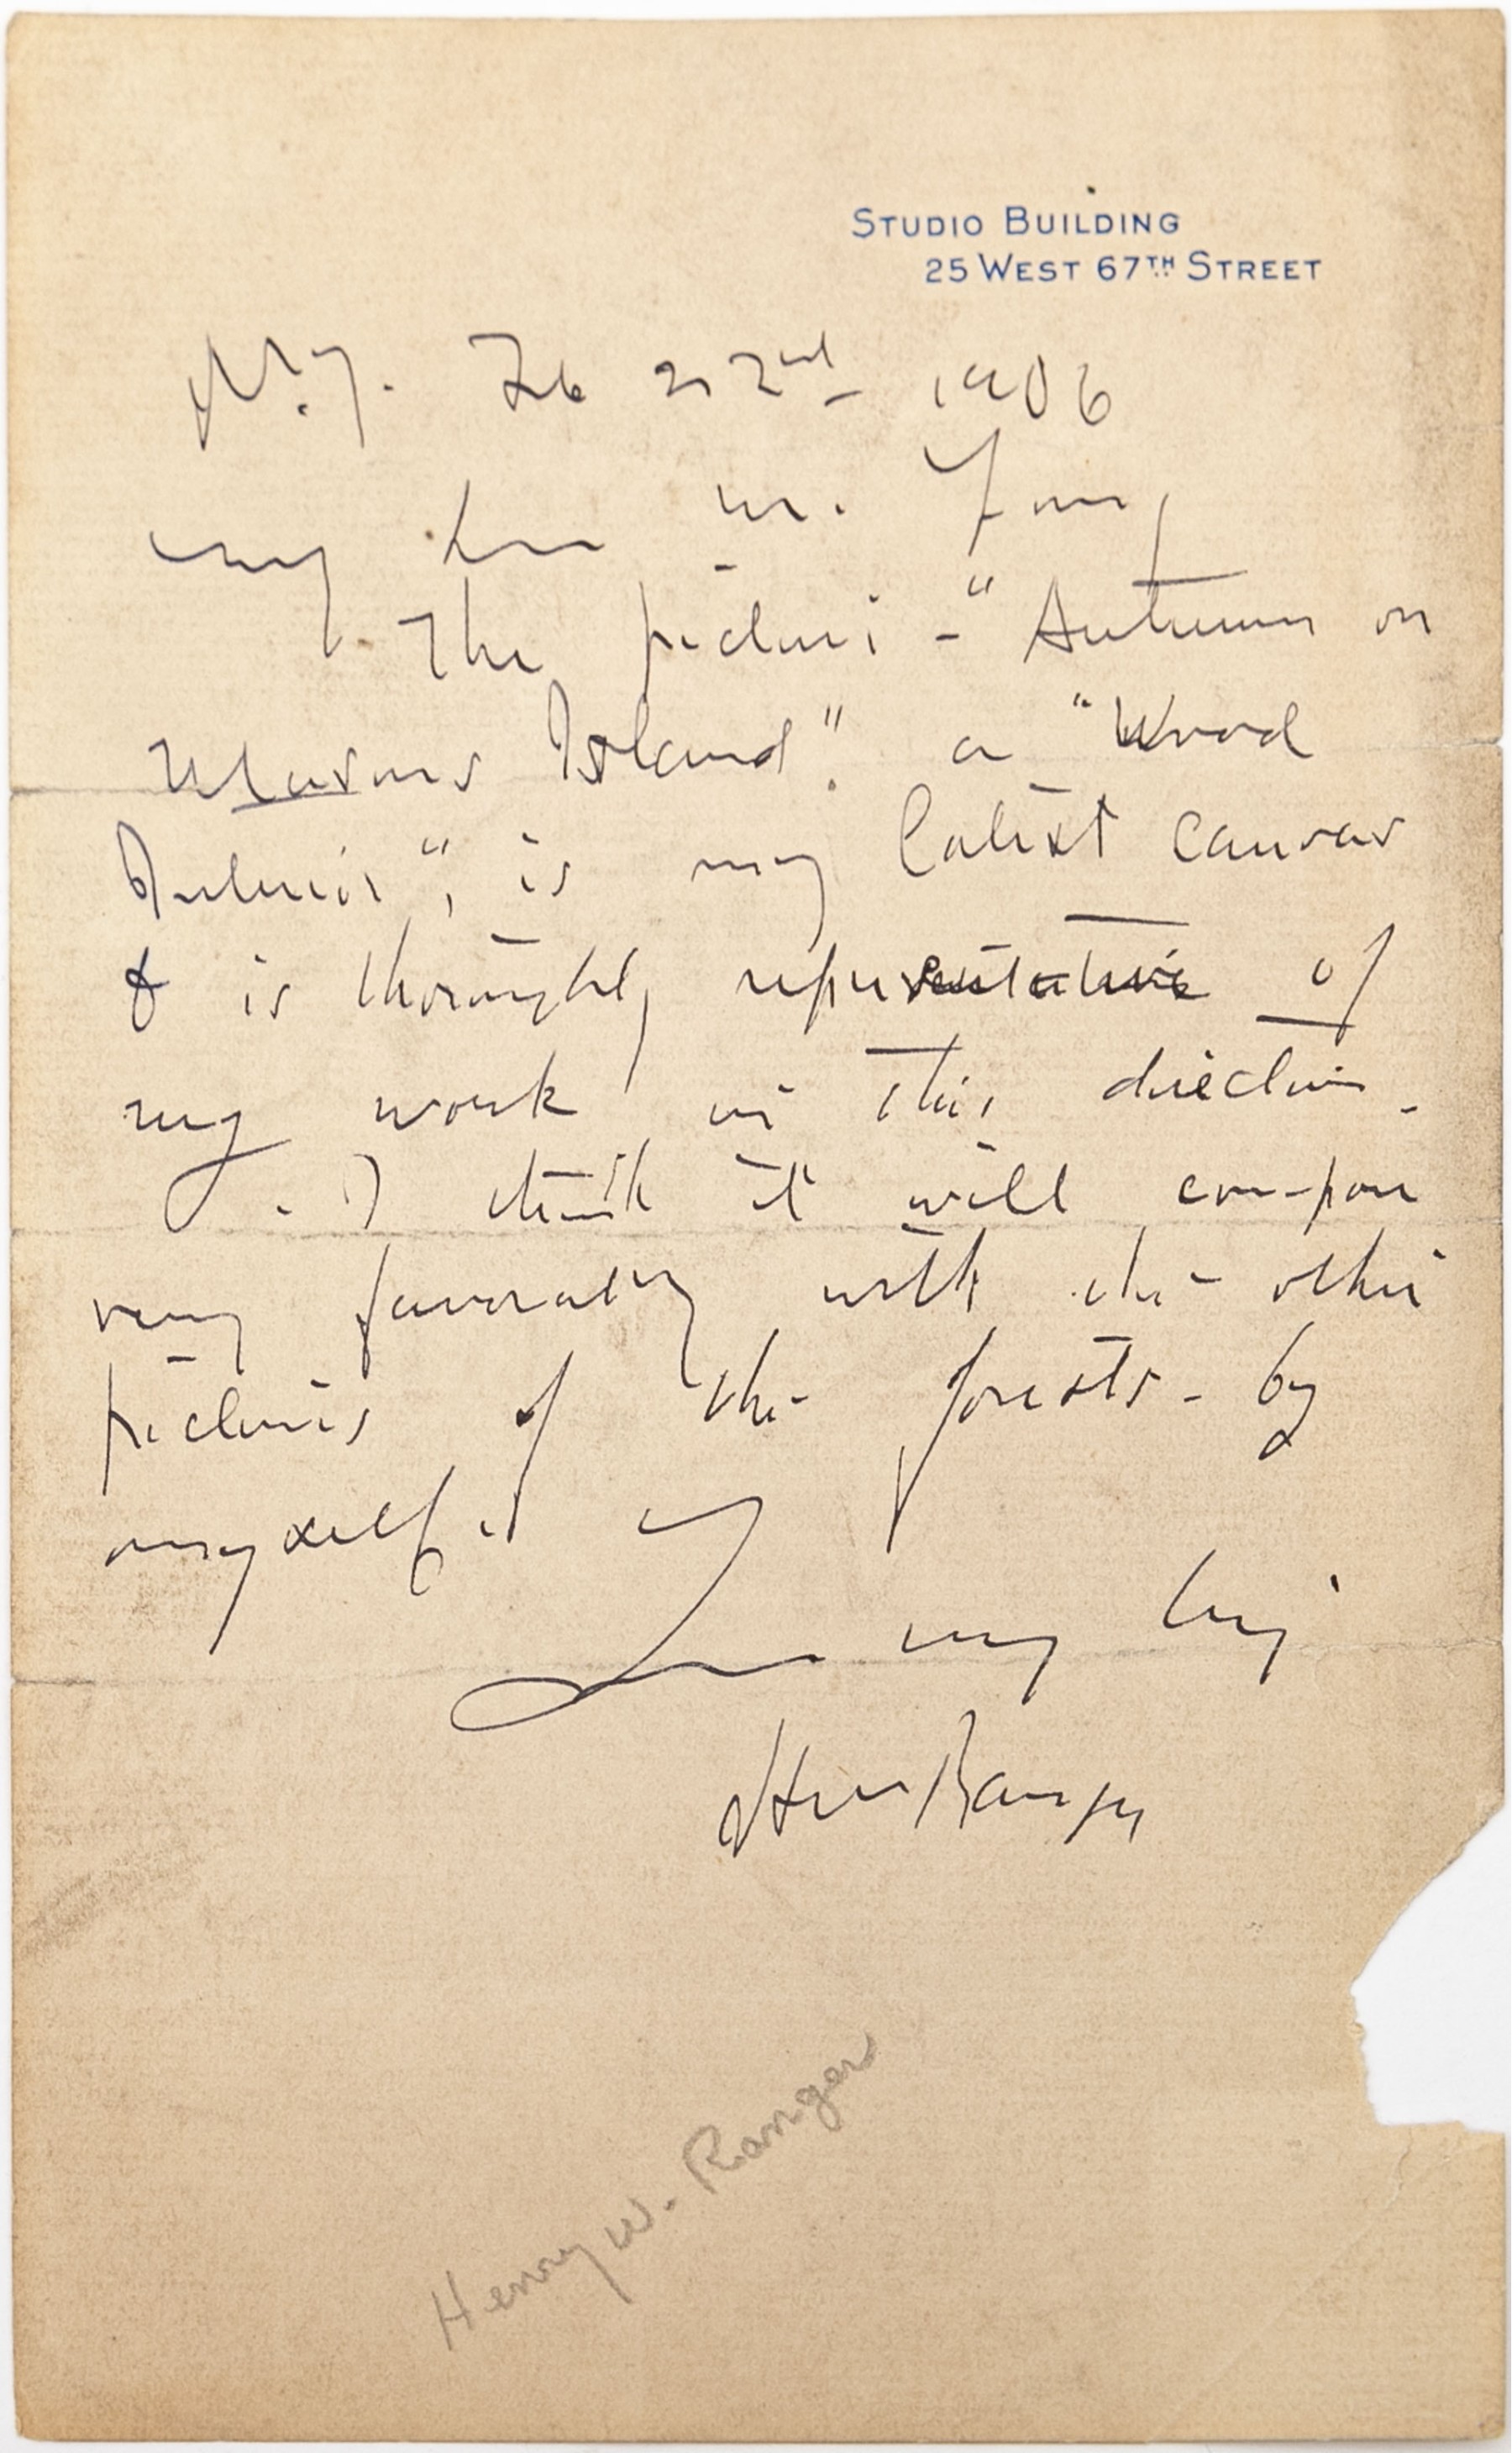 STUDIO BUILDING
25 WEST 67TH STREET
N.Y. Feb 22nd 1906
My dear Mr.
The picture - "Autumn on
Masons Island". a "Wood
Interior", is my latest canvas
& is thoroughly representative of
my work in this direction.
I think it will compare
very favorably with the other
pictures of the forests - by
myself.
HW Ranger
Henry W. Ranger